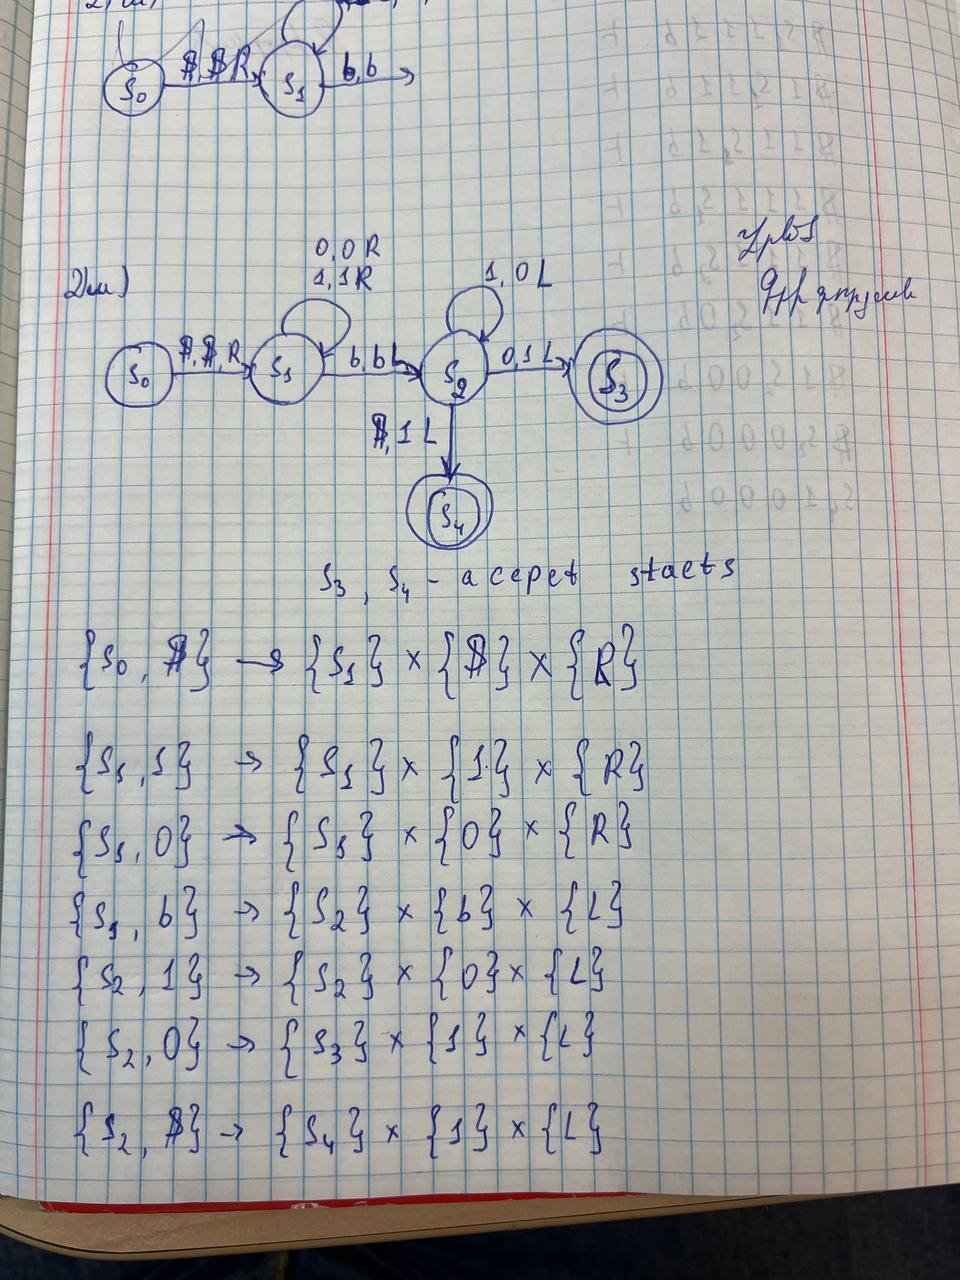 S₀ $,$R S₁ b,b
0,0R
1,1R
1,0L
S₀ $,$,R S₁ b,bL S₂ 0,1L S₃
$,1L
S₄
S₃, S₄ - accepet staets
{S₀, $} → {S₁} × {$} × {R}
{S₁, 1} → {S₁} × {1} × {R}
{S₁, 0} → {S₁} × {0} × {R}
{S₁, b} → {S₂} × {b} × {L}
{S₂, 1} → {S₂} × {0} × {L}
{S₂, 0} → {S₃} × {1} × {L}
{S₂, $} → {S₄} × {1} × {L}